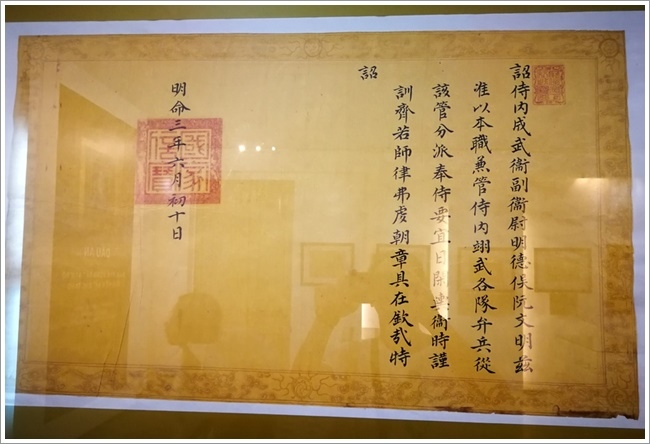 詔侍内成武衞副衞尉明德侯阮文明兹
准以本職兼管侍内翊武各隊弁兵從
該管分派奉侍要宜日閑輿衞時謹
訓齊若師律弗虔朝章具在欽哉特
詔
明命三年六月初十日
國家信寶